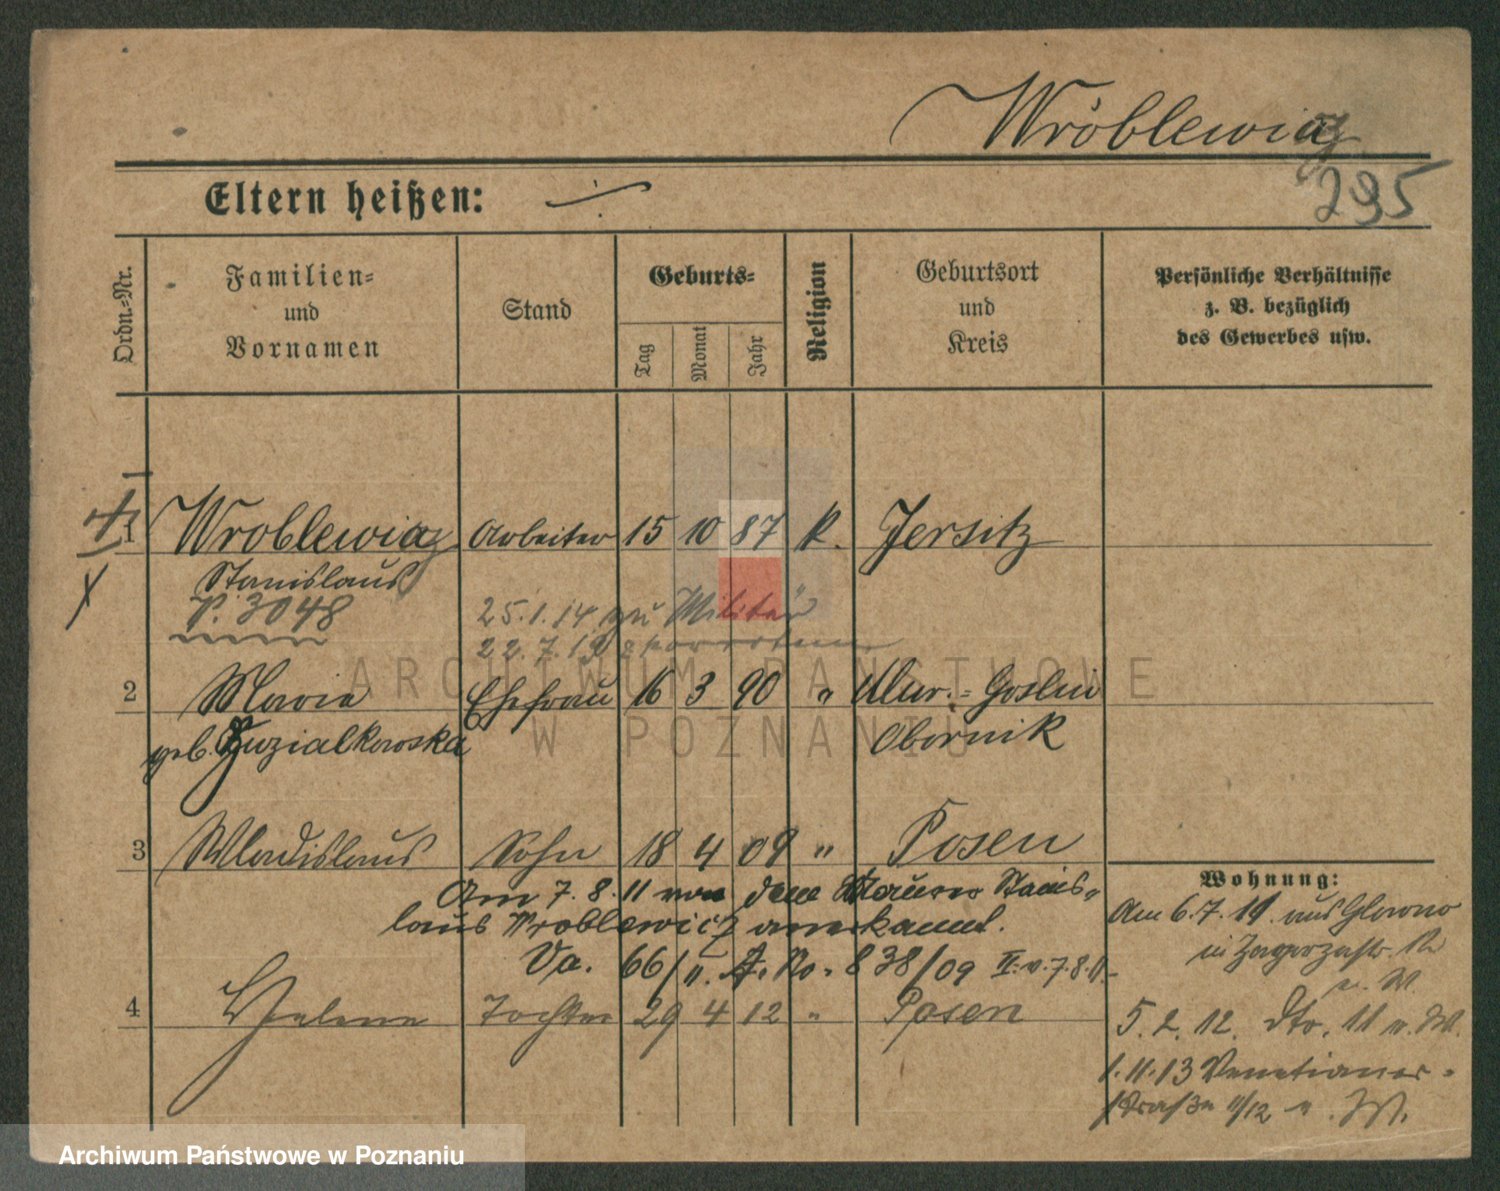 Wróblewicz
295
Eltern heißen:
Ordn.-Nr.
Familien-
und
Vornamen
Stand
Geburts-
Tag
Monat
Jahr
Religion
Geburtsort
und
Kreis
Persönliche Verhältnisse
z. B. bezüglich
des Gewerbes usw.
1 Wroblewicz Arbeiter 15 10 87 k. Jersitz
Stanislaus
P. 3048
25.1.14 zu Militär
22.7.19
2 Maria Ehefrau 16 3 90 " Mur.-Goslin
geb. Guzialkowska Obornik
3 Wladislaus Sohn 18 4 09 " Posen
Am 7.8.11 von dem Maurer Stanis-
laus Wroblewicz anerkannt.
Va. 66/11. A. No. 838/09 II. v. 7.8.11.
4 Helene Tochter 29 4 12 " Posen
Wohnung:
Am 6.7.11. aus Glowno
in Zagorzestr.
5.2.12. dto. 11 b. W.
1.11.13 Venetianer-
straße 11/12 b. W.
ARCHIWUM PAŃSTWOWE
W POZNANIU
Archiwum Państwowe w Poznaniu